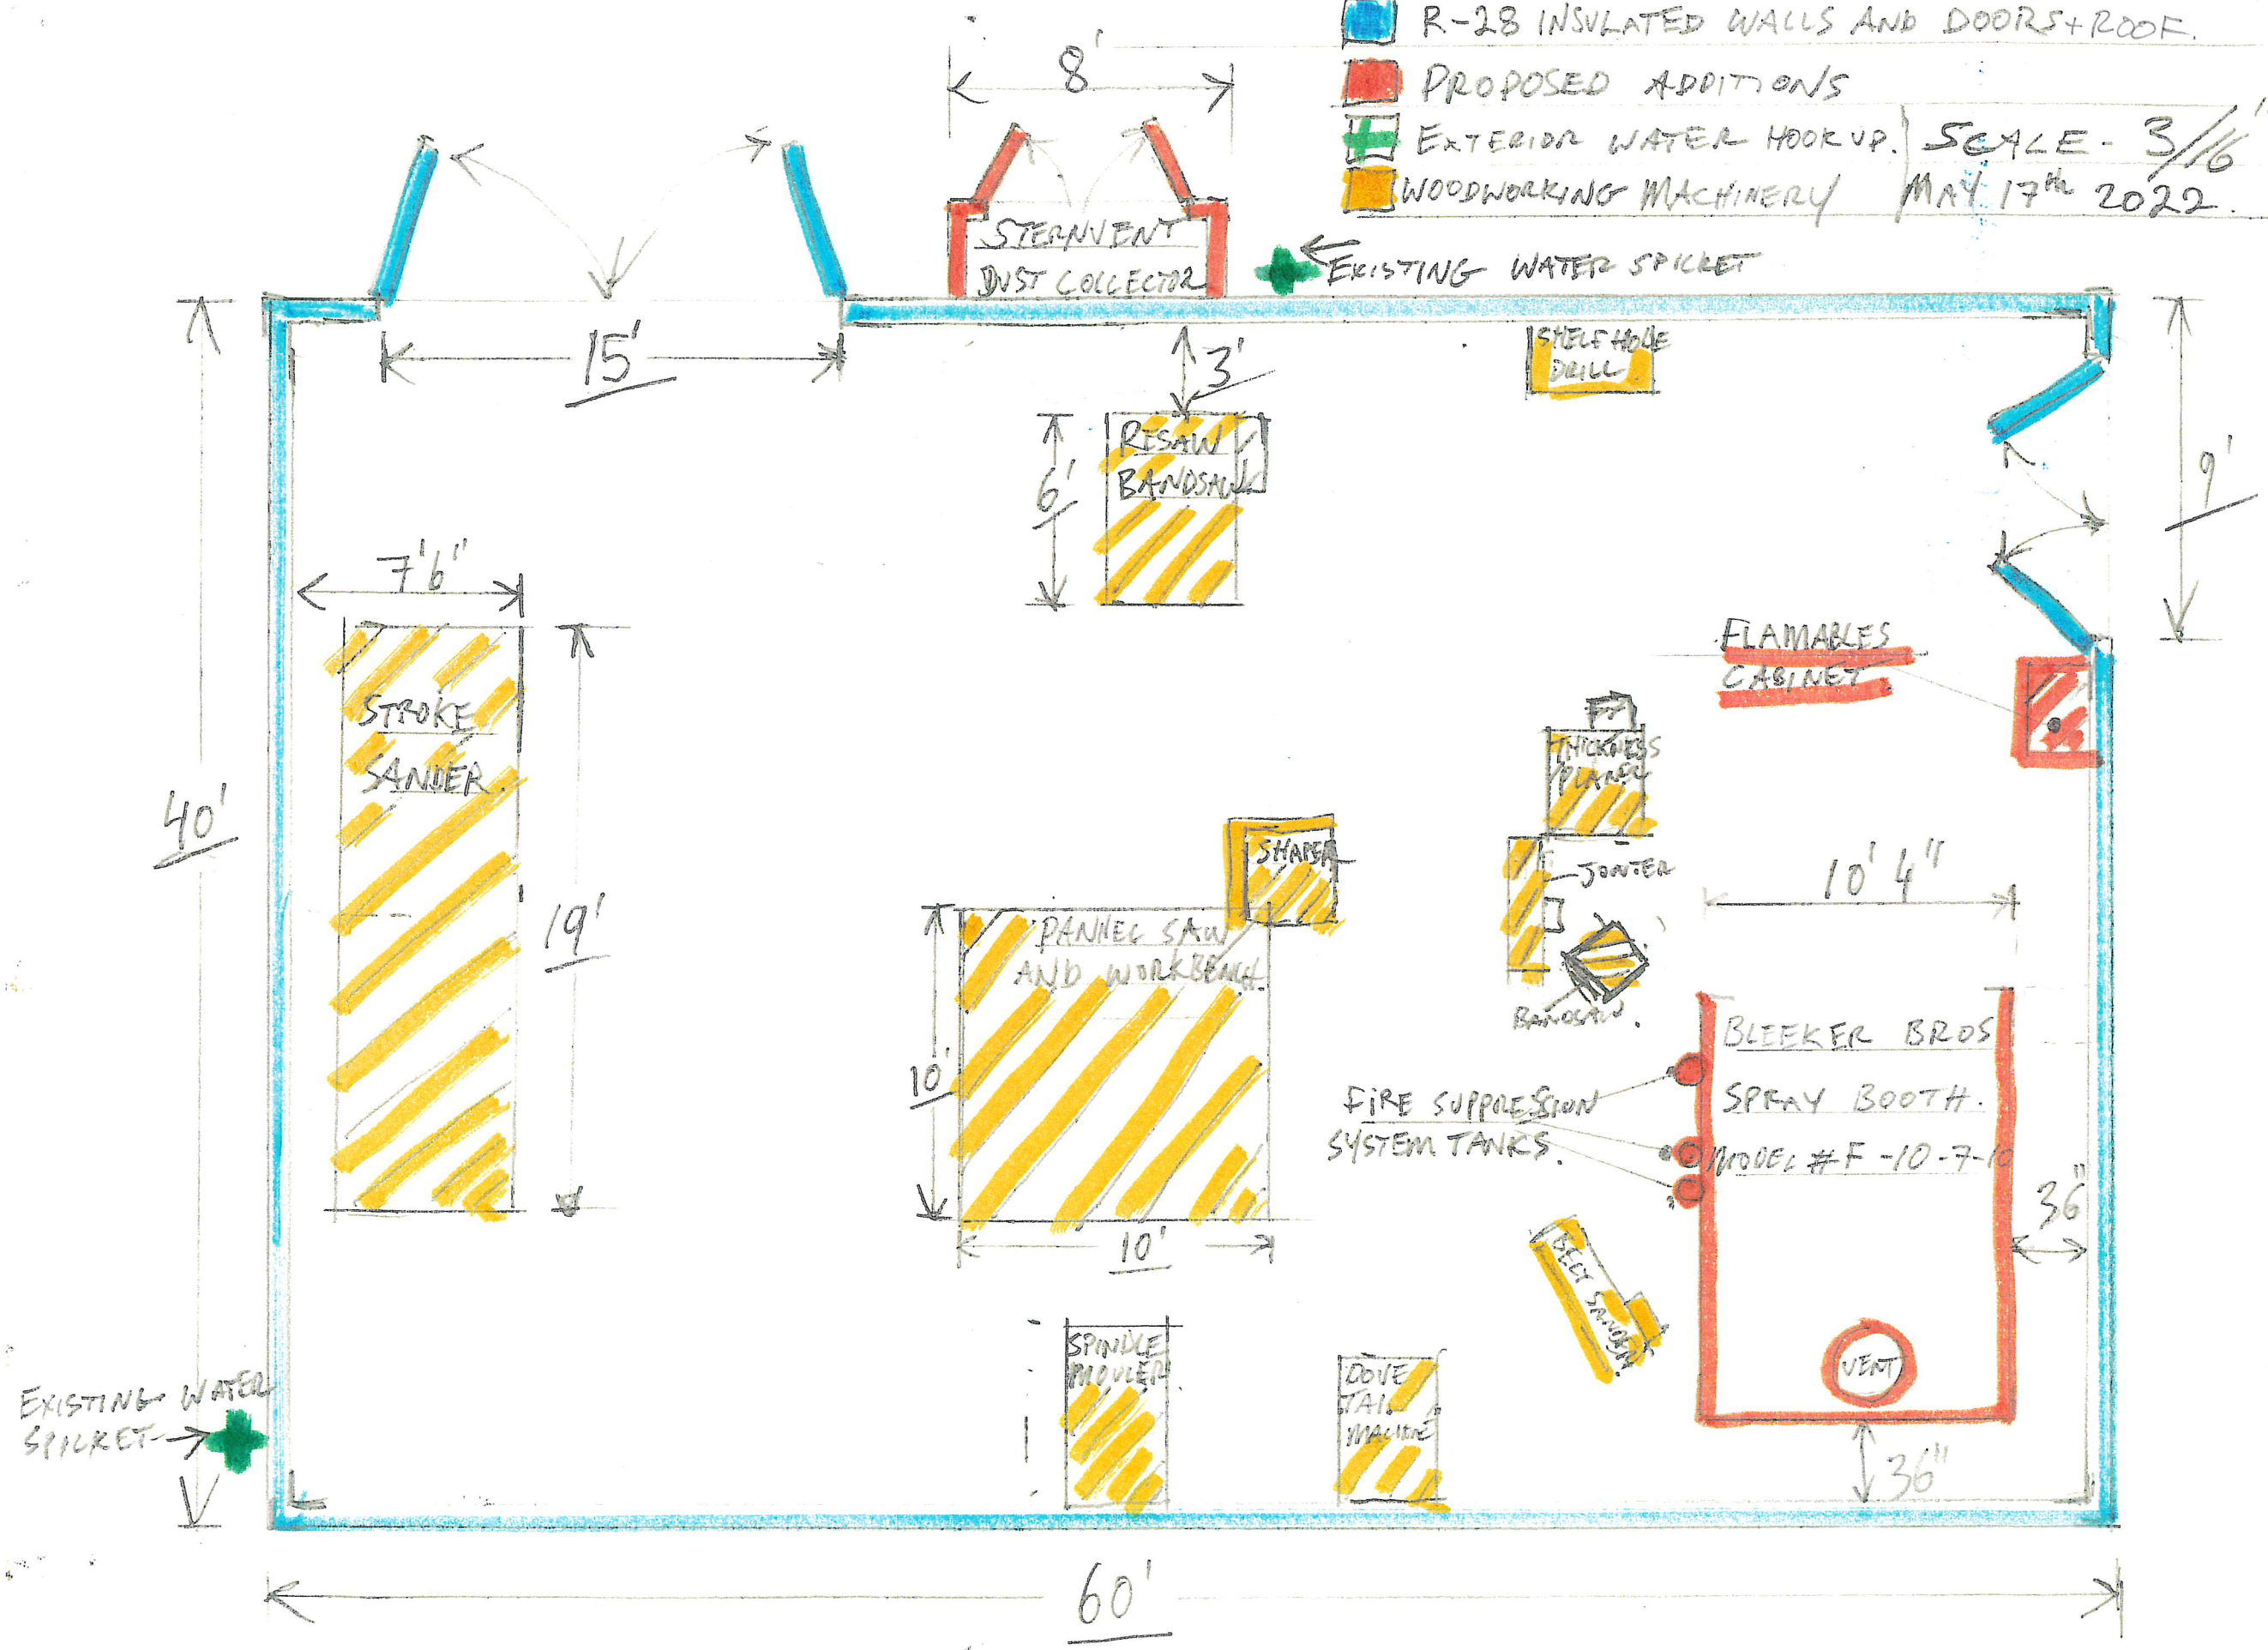 R-28 INSULATED WALLS AND DOORS + ROOF.
PROPOSED ADDITIONS
EXTERIOR WATER HOOK UP.
WOODWORKING MACHINERY
SCALE - 3/16'
MAY 17th 2022.
8'
STERNVENT
DUST COLLECTOR
EXISTING WATER SPICKET
15'
3'
SHELF HOLE
DRILL
RESAW
BANDSAW
6'
9'
7'6"
STROKE
SANDER
19'
40'
FLAMABLES
CABINET
THICKNESS
PLANER
SHAPER
JOINTER
BANDSAW.
10' 4"
PANNEL SAW
AND WORKBENCH
10'
10'
BLEEKER BROS
SPRAY BOOTH.
MODEL # F-10-7-10
FIRE SUPPRESSION
SYSTEM TANKS.
36"
BELT SANDER
SPINDLE
MOULER
DOVE
TAIL
MACHINE
VENT
36"
EXISTING WATER
SPICKET
60'